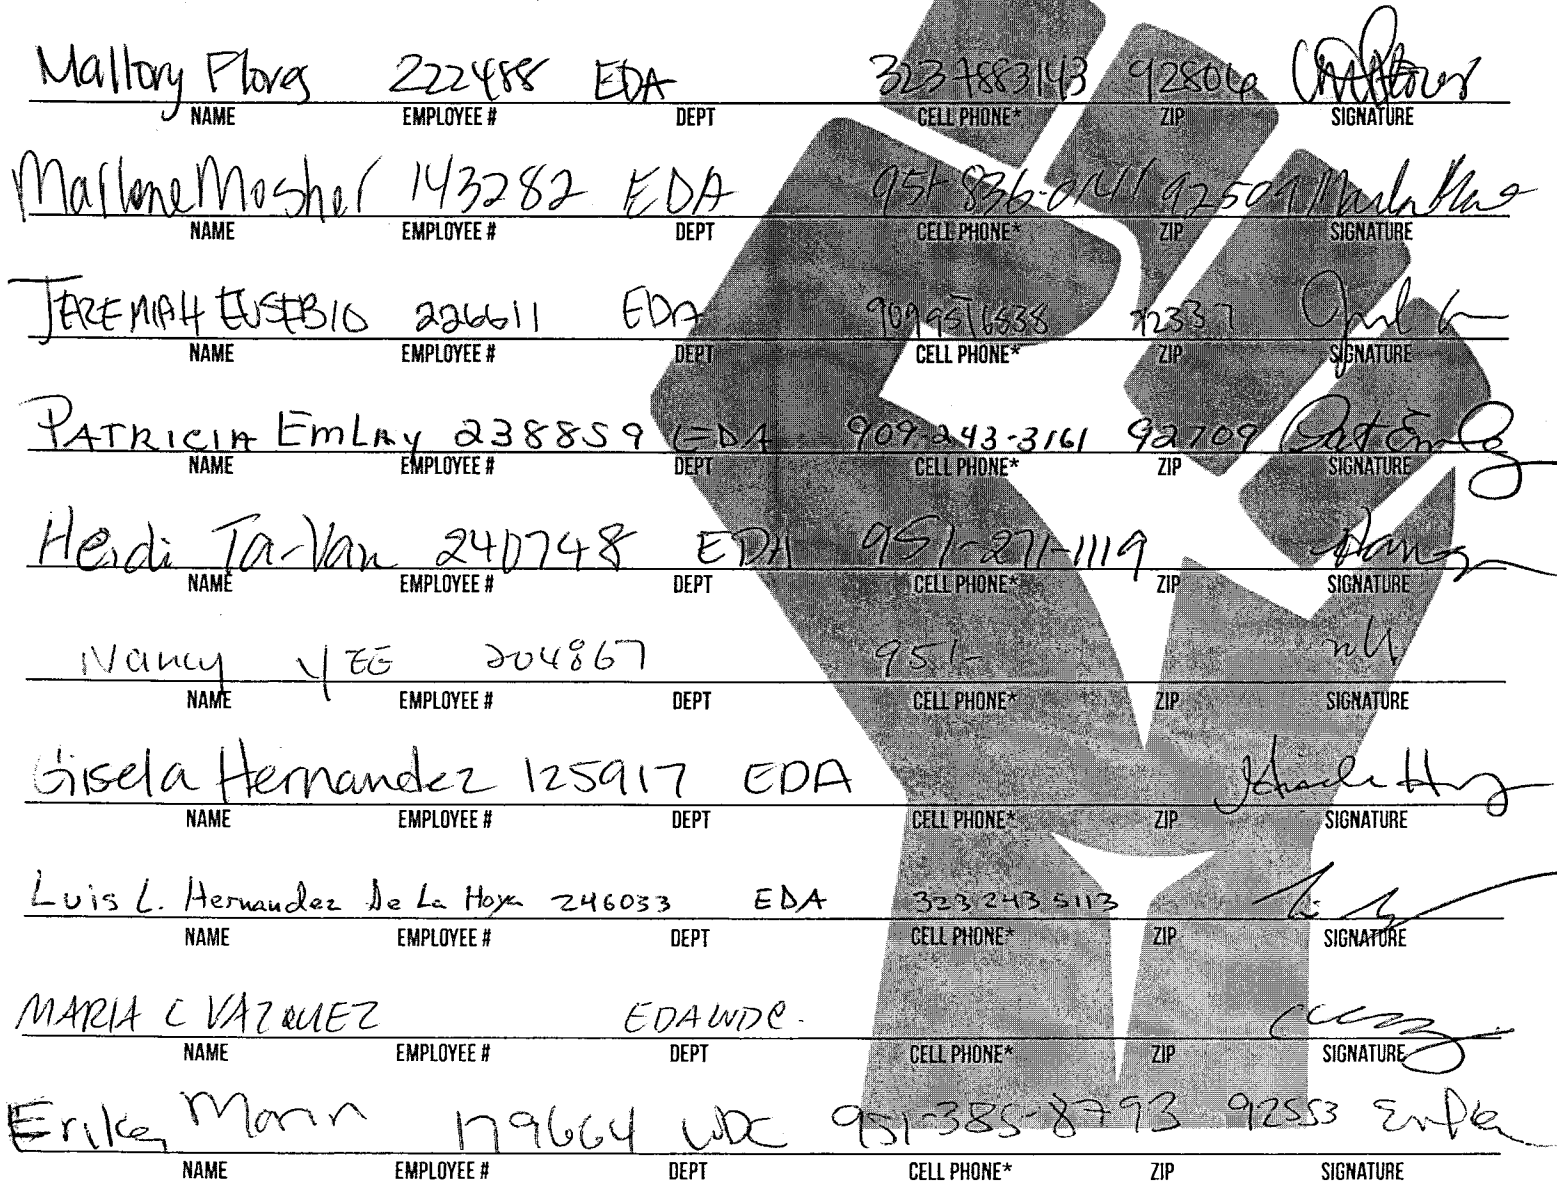 Mallory Flores 222488 EDA 3237883143 92806
NAME EMPLOYEE # DEPT CELL PHONE* ZIP SIGNATURE
Marlene Mosher 143282 EDA 951-836-0141 92509
NAME EMPLOYEE # DEPT CELL PHONE* ZIP SIGNATURE
JEREMIAH EUSEBIO 226611 EDA 92337
NAME EMPLOYEE # DEPT CELL PHONE* ZIP SIGNATURE
PATRICIA EMLAY 238859 EDA 909-243-3161 92709 Pat Emlay
NAME EMPLOYEE # DEPT CELL PHONE* ZIP SIGNATURE
Heidi Ta-Van 240748 EDA 951-271-1119
NAME EMPLOYEE # DEPT CELL PHONE* ZIP SIGNATURE
Nancy YEE 204867 951-
NAME EMPLOYEE # DEPT CELL PHONE* ZIP SIGNATURE
Gisela Hernandez 125917 EDA
NAME EMPLOYEE # DEPT CELL PHONE* ZIP SIGNATURE
Luis L. Hernandez De La Hoya 246033 EDA 323 243 5113
NAME EMPLOYEE # DEPT CELL PHONE* ZIP SIGNATURE
MARIA C VAZQUEZ EDA WDC.
NAME EMPLOYEE # DEPT CELL PHONE* ZIP SIGNATURE
Erika Morin 179664 WDC 951-385-8793 92553
NAME EMPLOYEE # DEPT CELL PHONE* ZIP SIGNATURE